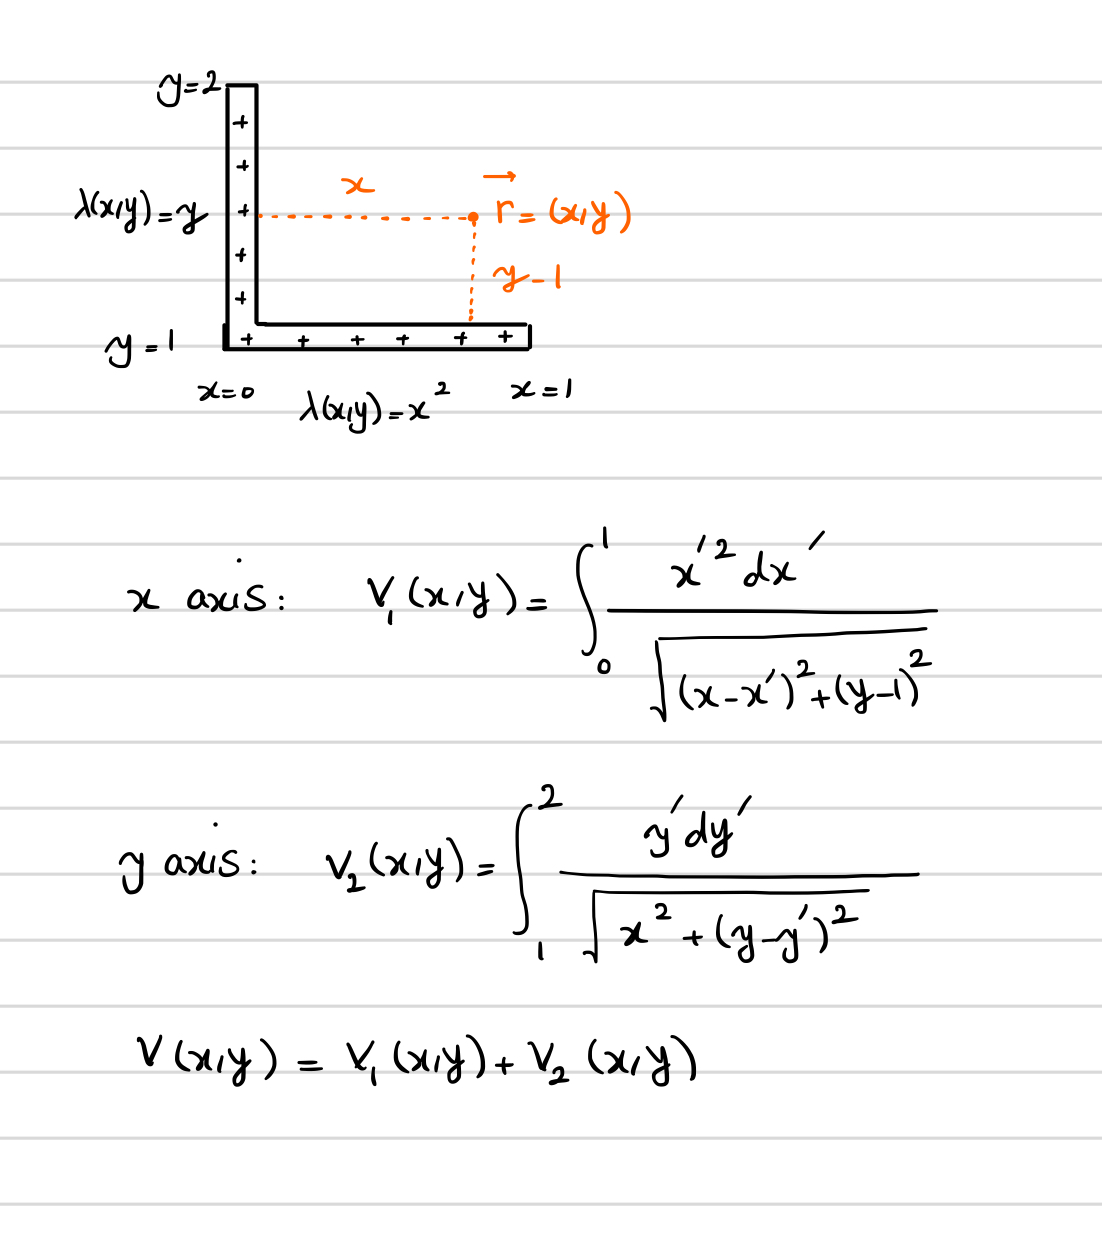 y=2
+
+
λ(x,y)=y
+
x
r⃗=(x,y)
+
y-1
+
y=1
+ + + + + +
x=0
λ(x,y)=x²
x=1
x axis: V₁(x,y)= ∫₀¹ x′²dx′ / √((x-x′)²+(y-1)²)
y axis: V₂(x,y)= ∫₁² y′dy′ / √(x²+(y-y′)²)
V(x,y) = V₁(x,y)+V₂(x,y)